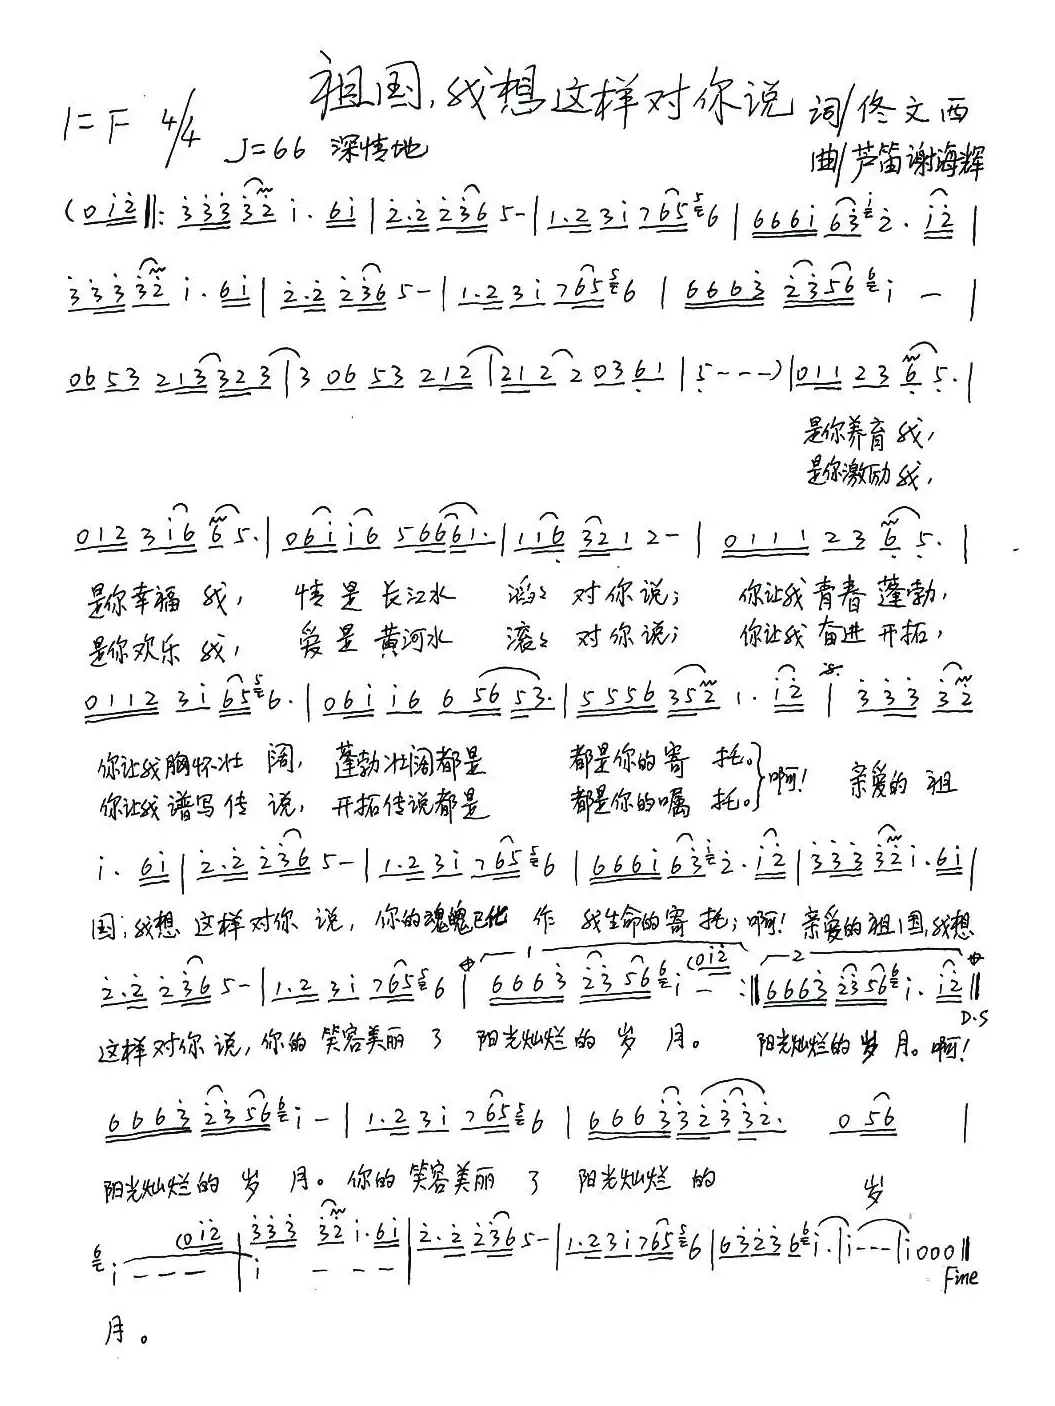 祖国,我想这样对你说
词/佟文西
1=F 4/4 J=66 深情地
曲/芦笛谢海辉
(0 i 2 ‖: 3 3 3 3 2 i. 6 i | 2. 2 2 3 6 5 - | 1. 2 3 i 7 6 5 6 | 6 6 6 i 6 3 2. i 2 |
3 3 3 3 2 i. 6 i | 2. 2 2 3 6 5 - | 1. 2 3 i 7 6 5 6 | 6 6 6 3 2 3 5 6 i - |
0 6 5 3 2 1 3 3 2 3 | 3 0 6 5 3 2 1 2 | 2 1 2 2 0 3 6 1 | 5 - - -) | 0 1 1 2 3 6 5. |
是你养育我,
是你激励我,
0 1 2 3 i 6 6 5. | 0 6 i i 6 5 6 6 6 1. | 1 1 6 3 2 1 2 - | 0 1 1 1 2 3 6 5. |
是你幸福我, 情是长江水 滔滔对你说; 你让我青春蓬勃,
是你欢乐我, 爱是黄河水 滚滚对你说; 你让我奋进开拓,
0 1 1 2 3 i 6 5 6. | 0 6 i i 6 6 5 6 5 3. | 5 5 5 6 3 5 2 1. i 2 | 3 3 3 3 2
你让我胸怀壮阔, 蓬勃壮阔都是 都是你的寄托。}啊! 亲爱的祖
你让我谱写传说, 开拓传说都是 都是你的嘱托。
i. 6 i | 2. 2 2 3 6 5 - | 1. 2 3 i 7 6 5 6 | 6 6 6 i 6 3 2. i 2 | 3 3 3 3 2 i. 6 i |
国;我想 这样对你说, 你的魂魄已化作 我生命的寄托; 啊! 亲爱的祖国,我想
2. 2 2 3 6 5 - | 1. 2 3 i 7 6 5 6 | 1 6 6 6 3 2 3 5 6 i - (0 i 2 :‖ 2 6 6 6 3 2 3 5 6 i. i 2 ‖
D.S
这样对你说, 你的笑容美丽了 阳光灿烂的岁月。 阳光灿烂的岁月。啊!
6 6 6 3 2 3 5 6 i - | 1. 2 3 i 7 6 5 6 | 6 6 6 3 3 2 3 3 2. 0 5 6 |
阳光灿烂的岁月。你的笑容美丽了 阳光灿烂的 岁
(0 i 2 | 3 3 3 3 2 i. 6 i | 2. 2 2 3 6 5 - | 1. 2 3 i 7 6 5 6 | 6 3 2 3 6 i. | i - - - | i 0 0 0 ‖
i - - - | i - - -
Fine
月。